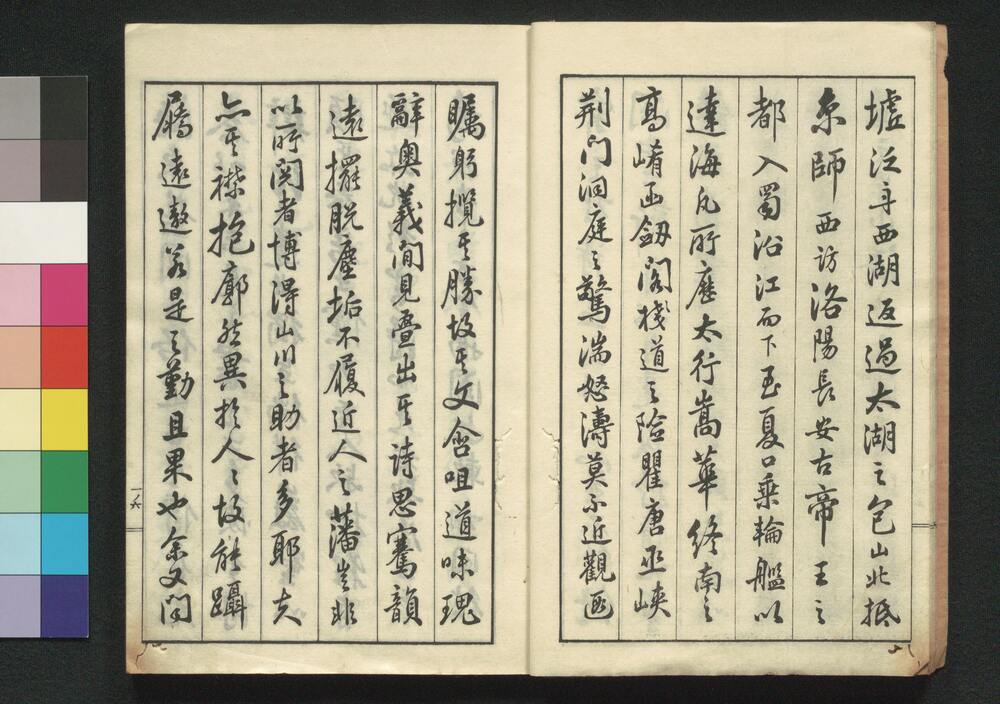 墟泛舟西湖返過太湖之包山北抵
京師西訪洛陽長安古帝王之
都入蜀沿江而下至夏口乗輪艦以
達海凡所歴太行嵩華終南之
高崤函劔閣棧道之險瞿唐巫峽
荊門洞庭之驚湍怒濤莫不近觀遐
矚躬攬其勝故其文含咀道味瑰
辭奥義間見疊出其詩思騫韻
遠擺脱塵垢不履近人之藩豈非
以所閲者博得山川之助者多耶夫
亦其襟抱廓然異於人人故能躡
屩遠遊若是之勤且果也余又聞
一六